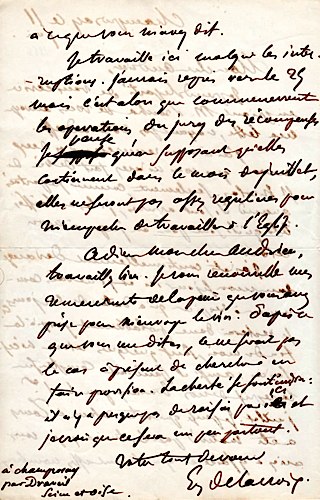 à ce que vous m'avez dit.
Je travaille ici malgré les inter-
ruptions. Je serais repris vers le 25
mais c'est alors que commenceront
les opérations du jury des récompenses
Je pense qu'en supposant qu'elles
continuent dans le mois de juillet,
elles ne seront pas assez régulières pour
m'empêcher de travailler à l'Eglise.
Adieu mon cher Andrieu,
travaillez bien. Je vous renouvelle mes
remerciements de la peine que vous avez
prise pour m'envoyer le vin : d'après ce
que vous me dites, ce ne serait pas
le cas à présent de chercher à en
faire provision. La cherté se soutiendra :
il y a peu de raisin par ici et
je crois que ce sera un peu partout.
Votre tout dévoué
Eug Delacroix.
à Champrosay
par Draveil
Seine et Oise.